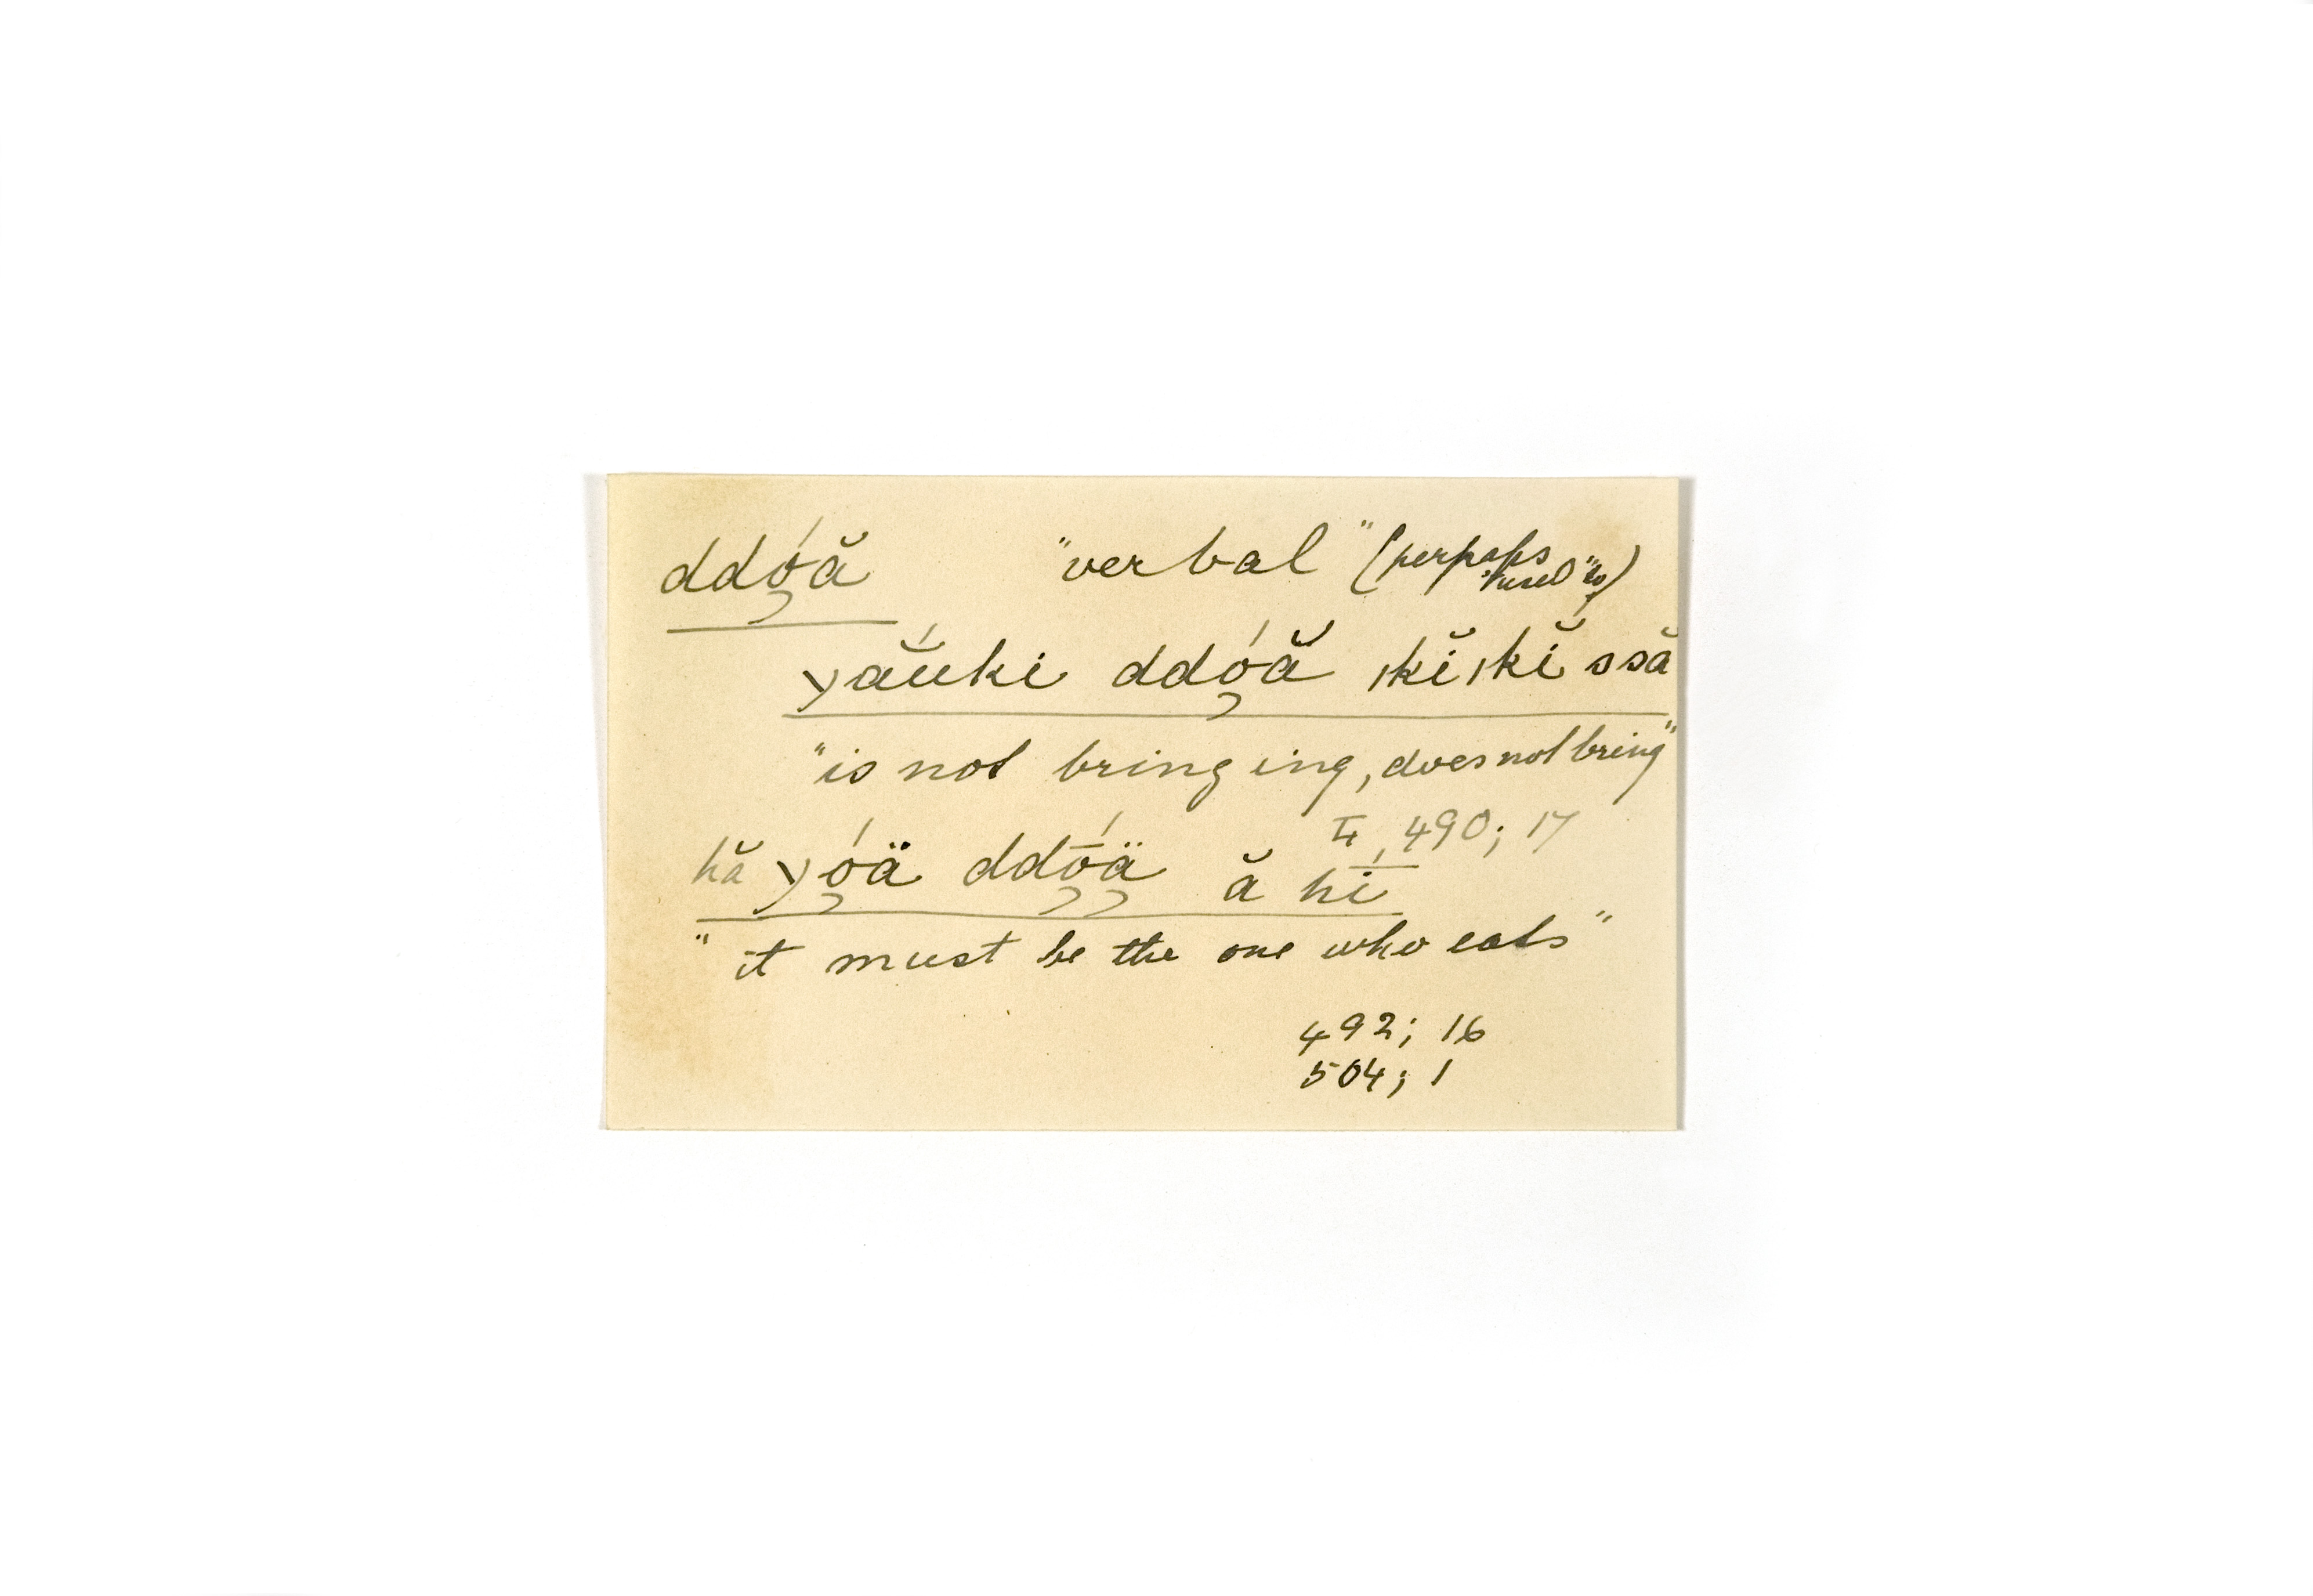 ddǫ́ă "verbal" (perhaps used "to")
yăúki ddǫ́ă ıkĭıkĭ ssă
"is not bringing, does not bring"
II, 490; 17
hă yǫ́ä ddǭ́ą̈ ă hī́
"it must be the one who eats"
492; 16
504; 1